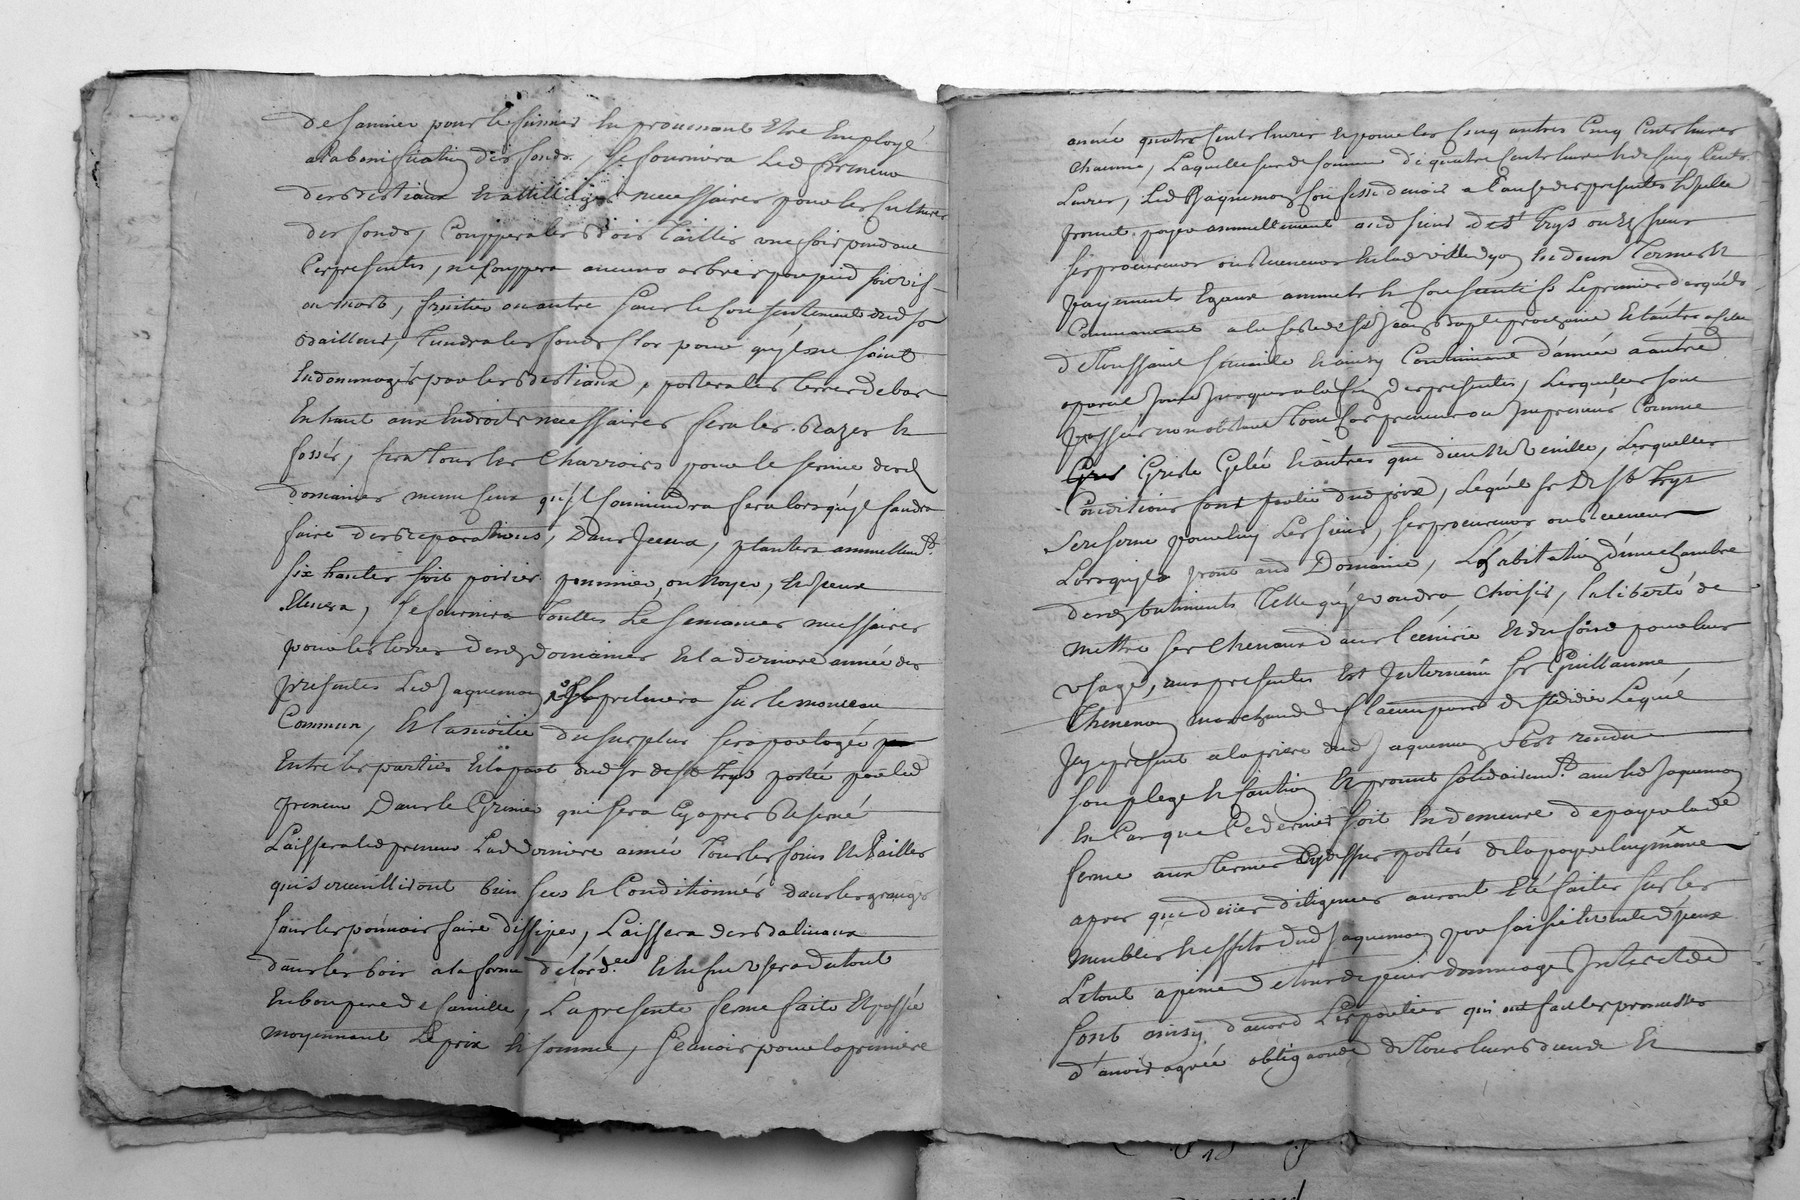 de fannier pour les fumiers En provenant Etre Employé
a la bonification desd fonds, se fournira Led preneur
des bestiaux Et attellages necessaires pour les Cultures
des fonds, Couppera les bois Taillis une fois pendant
Ces presentes, ne Couppera aucuns arbres par pied soit vif
ou mort, fruitier ou autre sans le Consentement dud sr
bailleur, Tiendra les fonds Clos pour qu'ils ne soient
Endommagés par les bestiaux, portera les terres de bas
En haut aux Endroits necessaires fera les razes Et
fossés, fera tous les Charrois pour le service desd
domaines meme ceux qu'il Conviendra faire lorsqu'il faudra
faire des reparations, Dans Iceux, plantera annuellemt
six hautes soit poirier pommier, ou noyer, Et Iceux
Elevera, se fournira Touttes Les semances necessaires
pour les terres desd domaines Et la derniere année des
presentes Led Jaquemon prelevera sur le monceau
Commun, Et la moitié du surplus sera partagée
Entre les parties Et la part dud sr de St Trys portée par led
preneur Dans le Grenier qui sera Cy apres Reservé
Laissera led preneur Lad derniere année Tous les foins Et Pailles
qui se recuilliront bien secs Et Conditionnés dans les granges
sans les pouvoir faire dissiper, Laissera des baliveaux
dans les bois a la forme de l'ord.ce Et En fin usera du tout
En bon pere de famille, La presente ferme faite Et passée
moyennant Le prix Et somme, sçavoir pour la premiere
année quatre Cents livres Et pour les Cinq autres Cinq Cents livres
Chacune, Laquelle susd somme de quatre Cents livres Et de Cinq Cents
Livres, Led Jaquemon Confesse devoir a Cause des presentes Et Icelle
promet payer annuellement aud sieur de St Trys ou Es sieurs
ses procureurs ou receveurs En lad ville Lyon En deux Termes Et
payements Egaux annuels Et Consecutifs Le premier desquels
Commancant a la feste de St Jean Baptiste prochaine Et l'autre a celle
de Toussaint suivante Et ainsy Continuant d'année a autre
a pareil Jour Jusques a la fin des presentes, Lesquelles sont
passées nonobstant Tous Cas preveus ou Impreveus, Comme
Gresle Gelée Et autres que dieu ne veuille, Lesquelles
Conditions font partie dud prix, Lequel sr De St Trys
se reserve pour luy Les siens, ses procureurs ou receveurs
Lorsqu'ils Iront aud Domaine, L'habitation d'une chambre
desd batiments Telle qu'il voudra Choisir, la liberté de
mettre ses Chevaux dans l'ecurie Et du foin pour leur
usage, aux presentes Est Intervenu sr Guillaume
Thevenon marchand de la parroisse de St didier Lequel
Icy present a la priere dud Jaquemon s'est rendu
son plege Et Caution Et promet solidairemt avec led Jaquemon
En Cas que Ce dernier soit En demeure de payer lad
ferme aux termes Cy dessus portés de la payer luy même
apres que dües diligences auront Eté faites sur les
meubles Et effets dud Jaquemon par saisie Et vente d'iceux
Le tout a peine de tous depens dommages Interets Et de
Sont ainsy d'acord Les parties qui ont fait les promesses
d'avoir agrée obligeance de Tous leurs biens Et